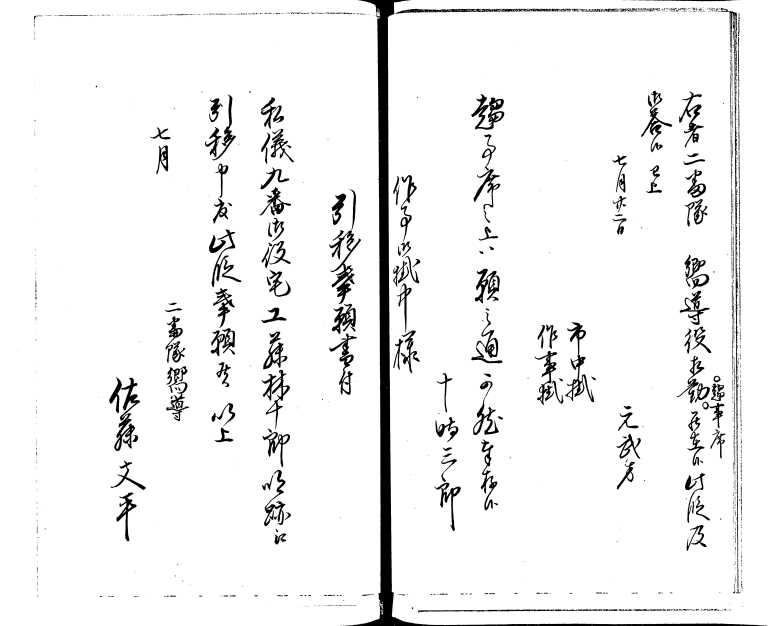 右者二番隊嚮導役相勤罷在候此段及
趨事席
御答候已上
七月廿二日
元武方
市中掛
作事掛
趨事席之上ハ願之通可然奉存候
十時三郎
作事御掛中様
引移奉願書付
私儀九番御役宅工藤林十郎明跡江
引移申度此段奉願候以上
七月
二番隊嚮導
佐藤文平